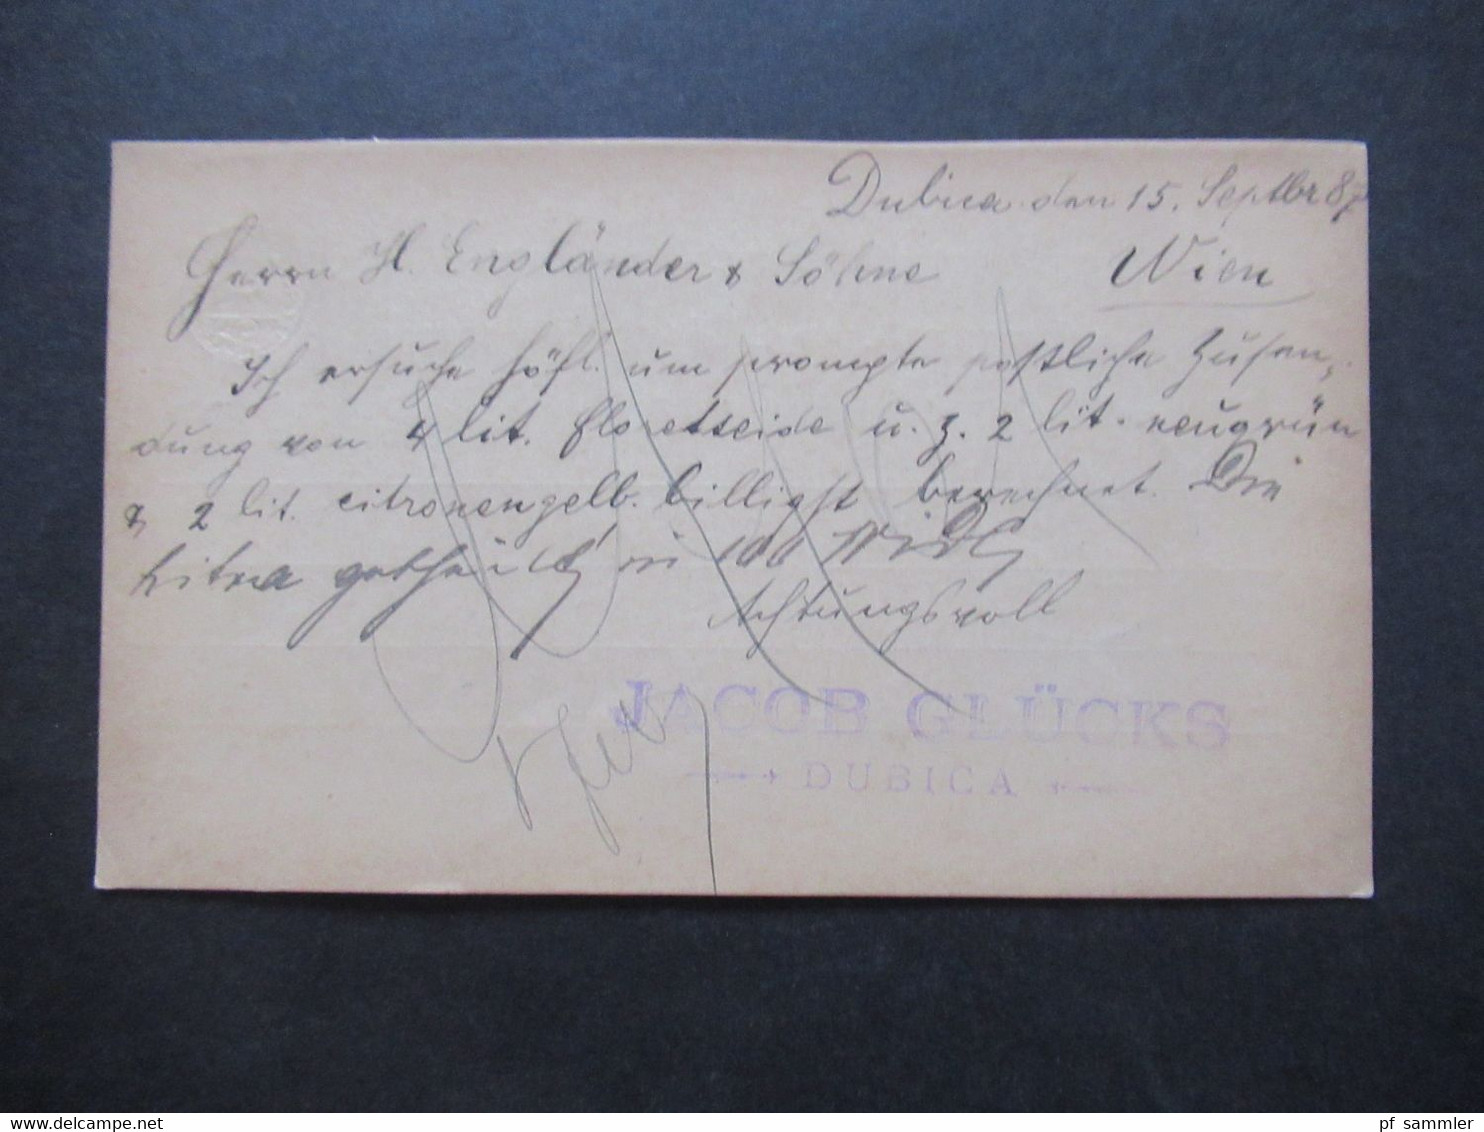 Dubica den 15. Septbr 87
Herrn H. Engländer & Söhne Wien
Ich ersuche höfl. um prompte postliche Zusen-
dung von 4 lit. Floretseide u. z. 2 lit. neugrün
& 2 lit. citronengelb. billigst berechnet. Die
Litra getheilt in 100
Achtungsvoll
JACOB GLÜCKS
DUBICA
delcampe.net
pf_sammler